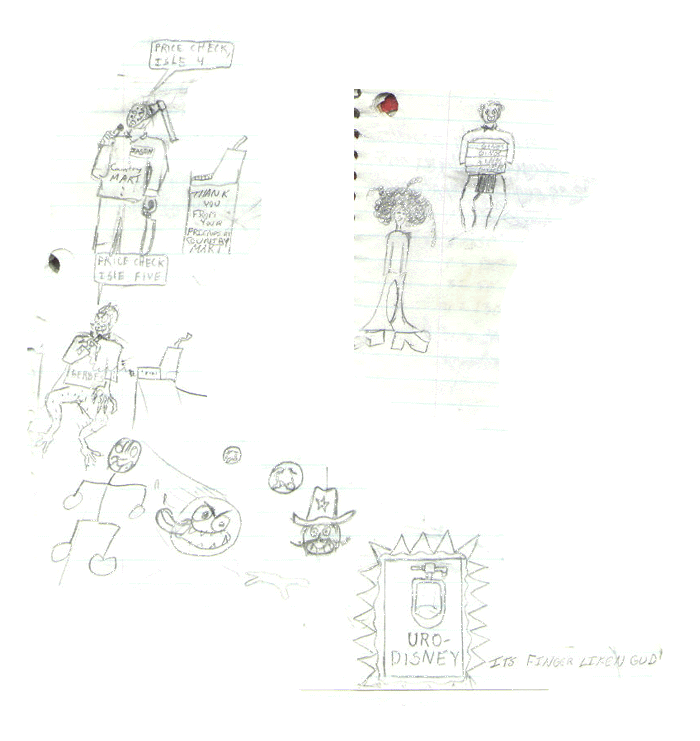 PRICE CHECK,
ISLE 4
JASON
Country
MART
THANK
YOU
FROM
YOUR
FRIENDS AT
COUNTRY
MART
PRICE CHECK
ISLE FIVE
URO-
DISNEY
ITS FINGER LIKEN GUD'